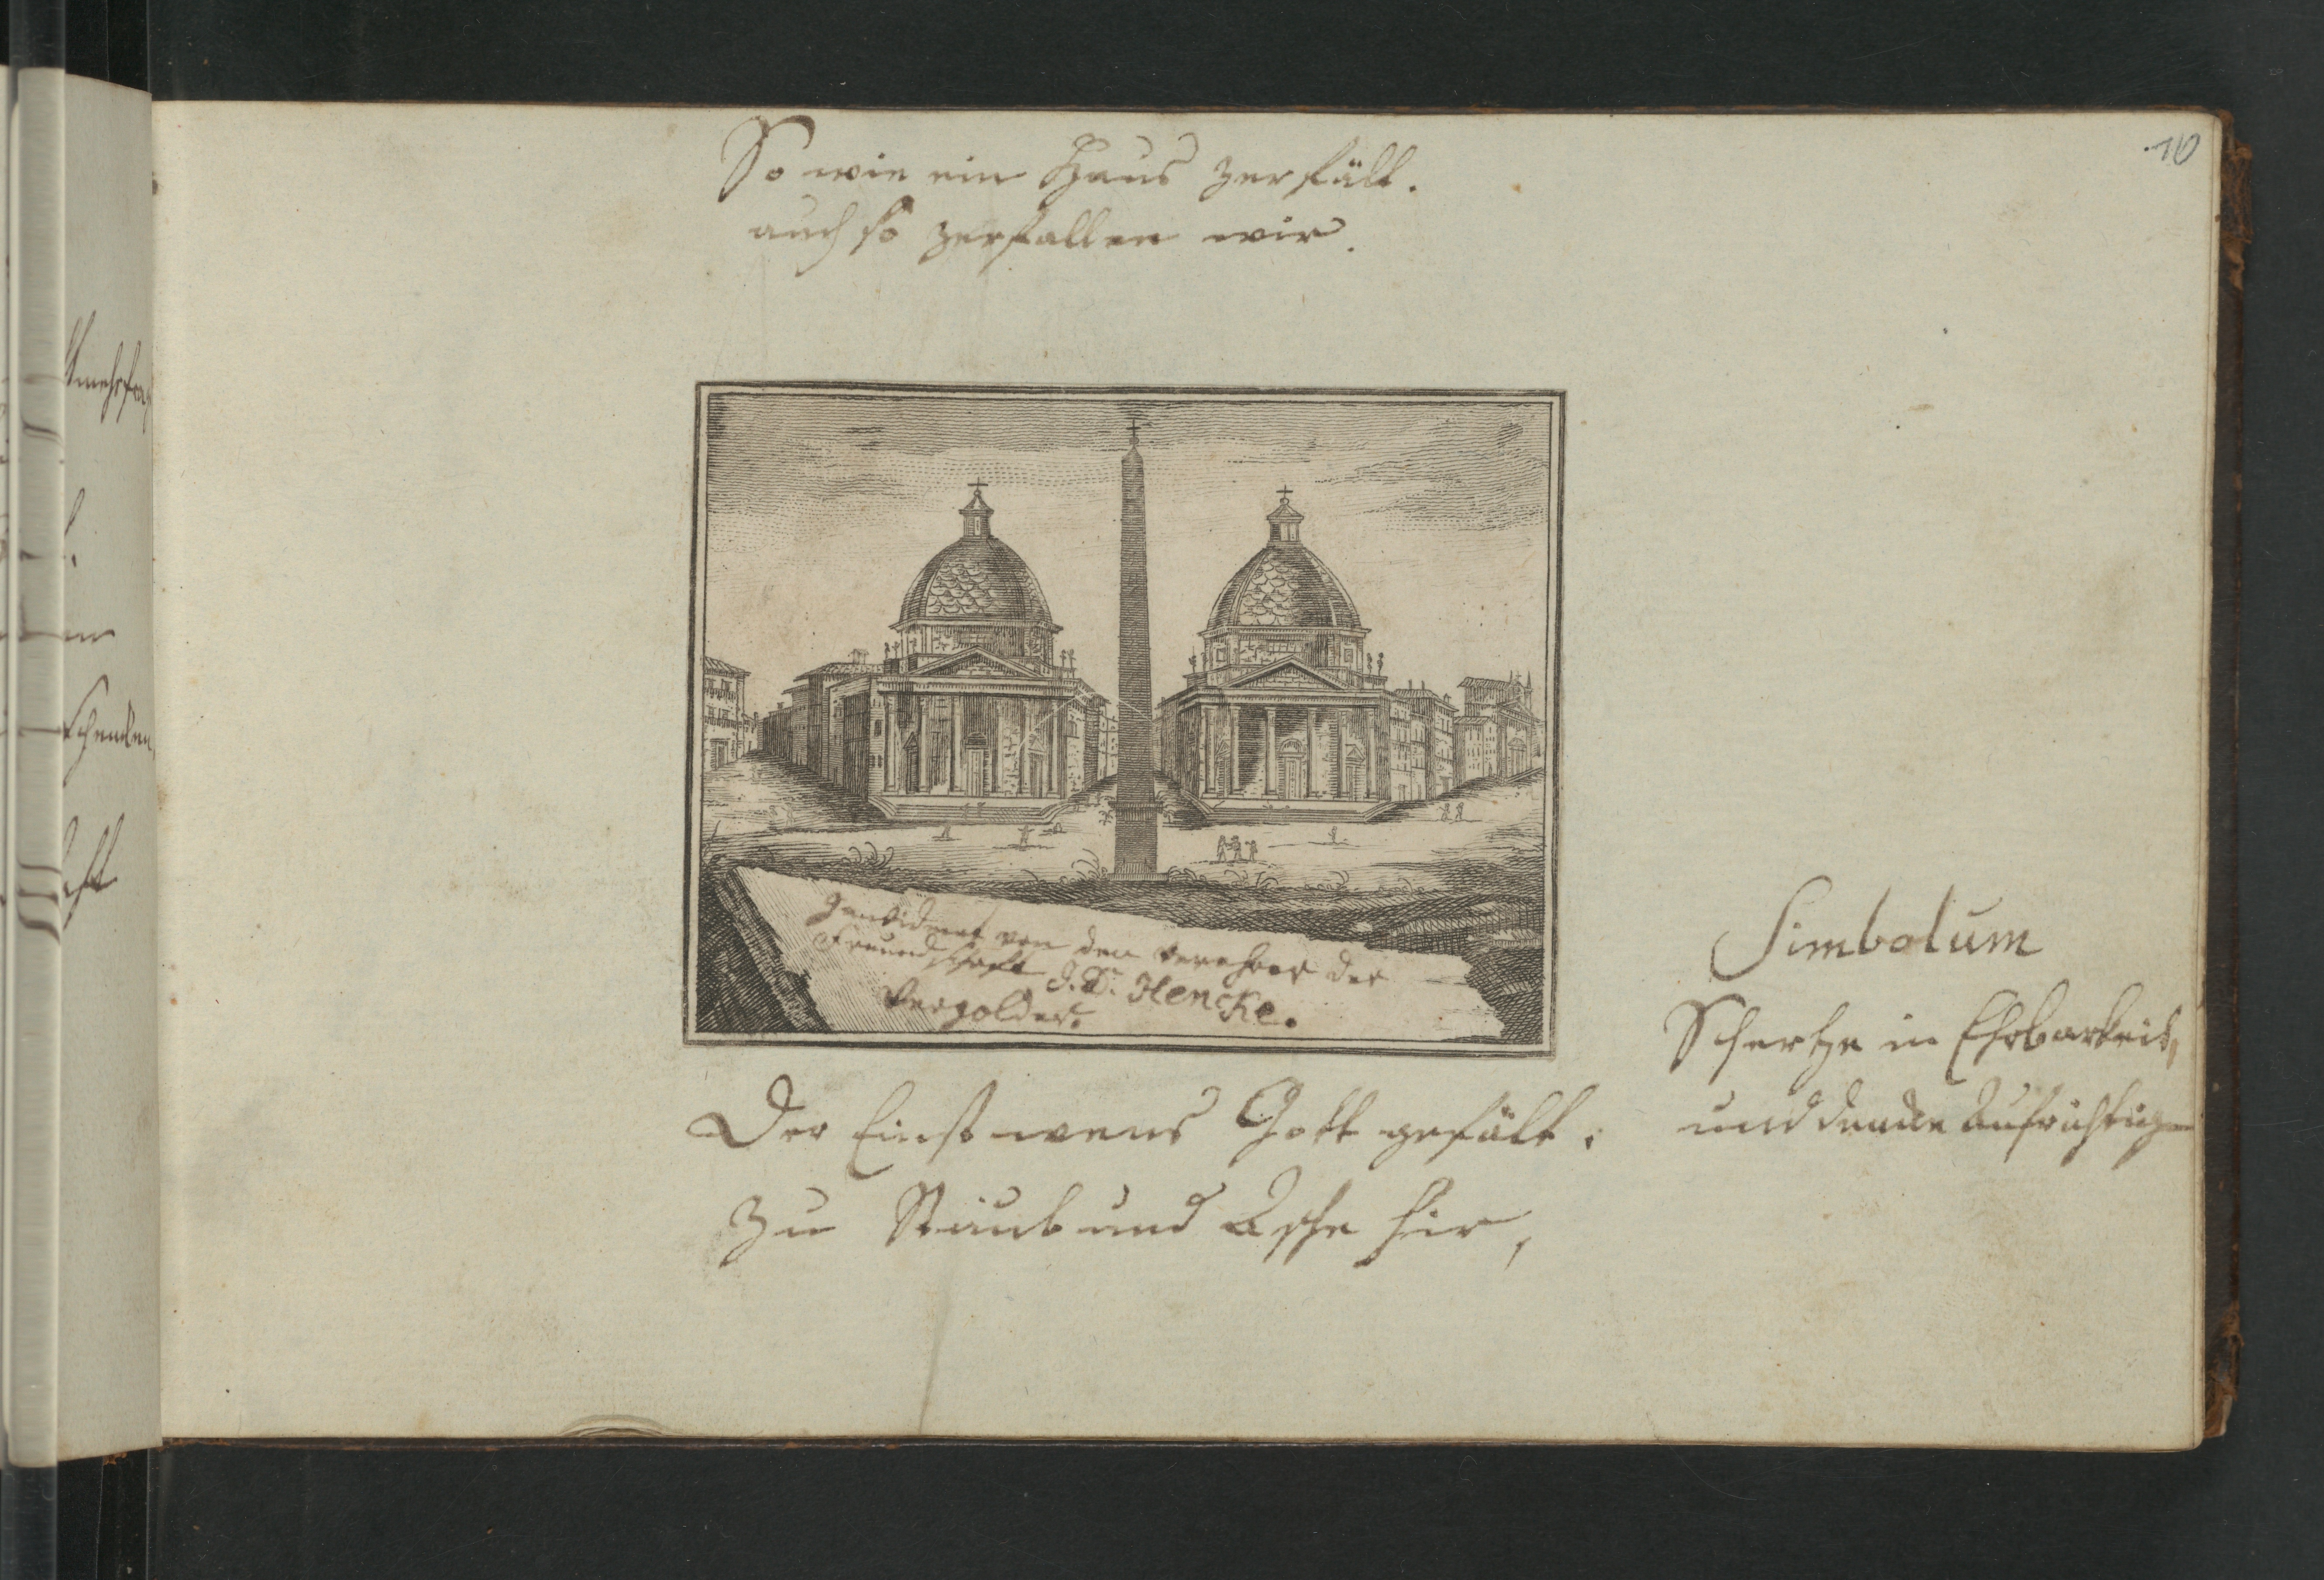 10
So wie ein Haus zerfält.
auch so zerfallen wir.
gewidmet von den verehrer der
Freundschafft J. D. Hencke.
Vergolder.
Der Einst wens Gott gefält.
Zu Staub und Asche hir,
Simbolum
Schertze in Ehrbarkeit,
und dencke Aufrichtig